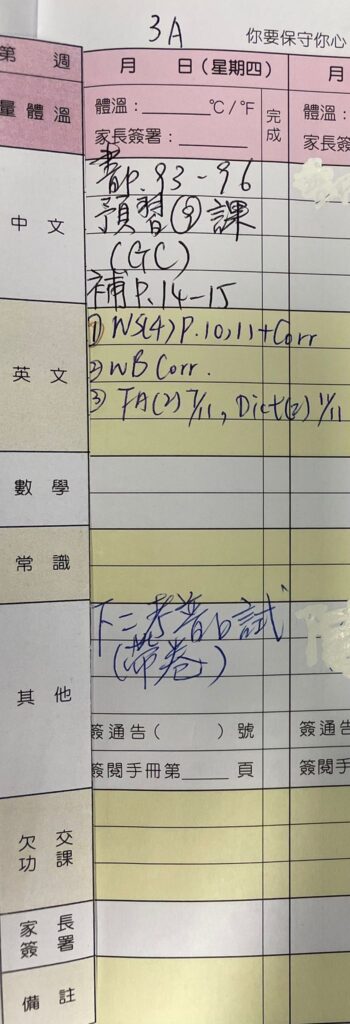 3A
你要保守你心
第 週
月 日(星期四)
月
量體溫
體溫:______℃/℉
完成
體溫:
家長簽署:______
家長簽
中文
書P.93-96
預習⑨課
(GC)
補P.14-15
英文
① WS(4) P.10,11+Corr
② WB Corr.
③ FA(2) 7/11, Dict(2) 11/11
數學
常識
其他
下二考普口試
(帶卷)
簽通告( )號
簽通告
簽閱手冊第____頁
簽閱手
欠交功課
家長簽署
備註